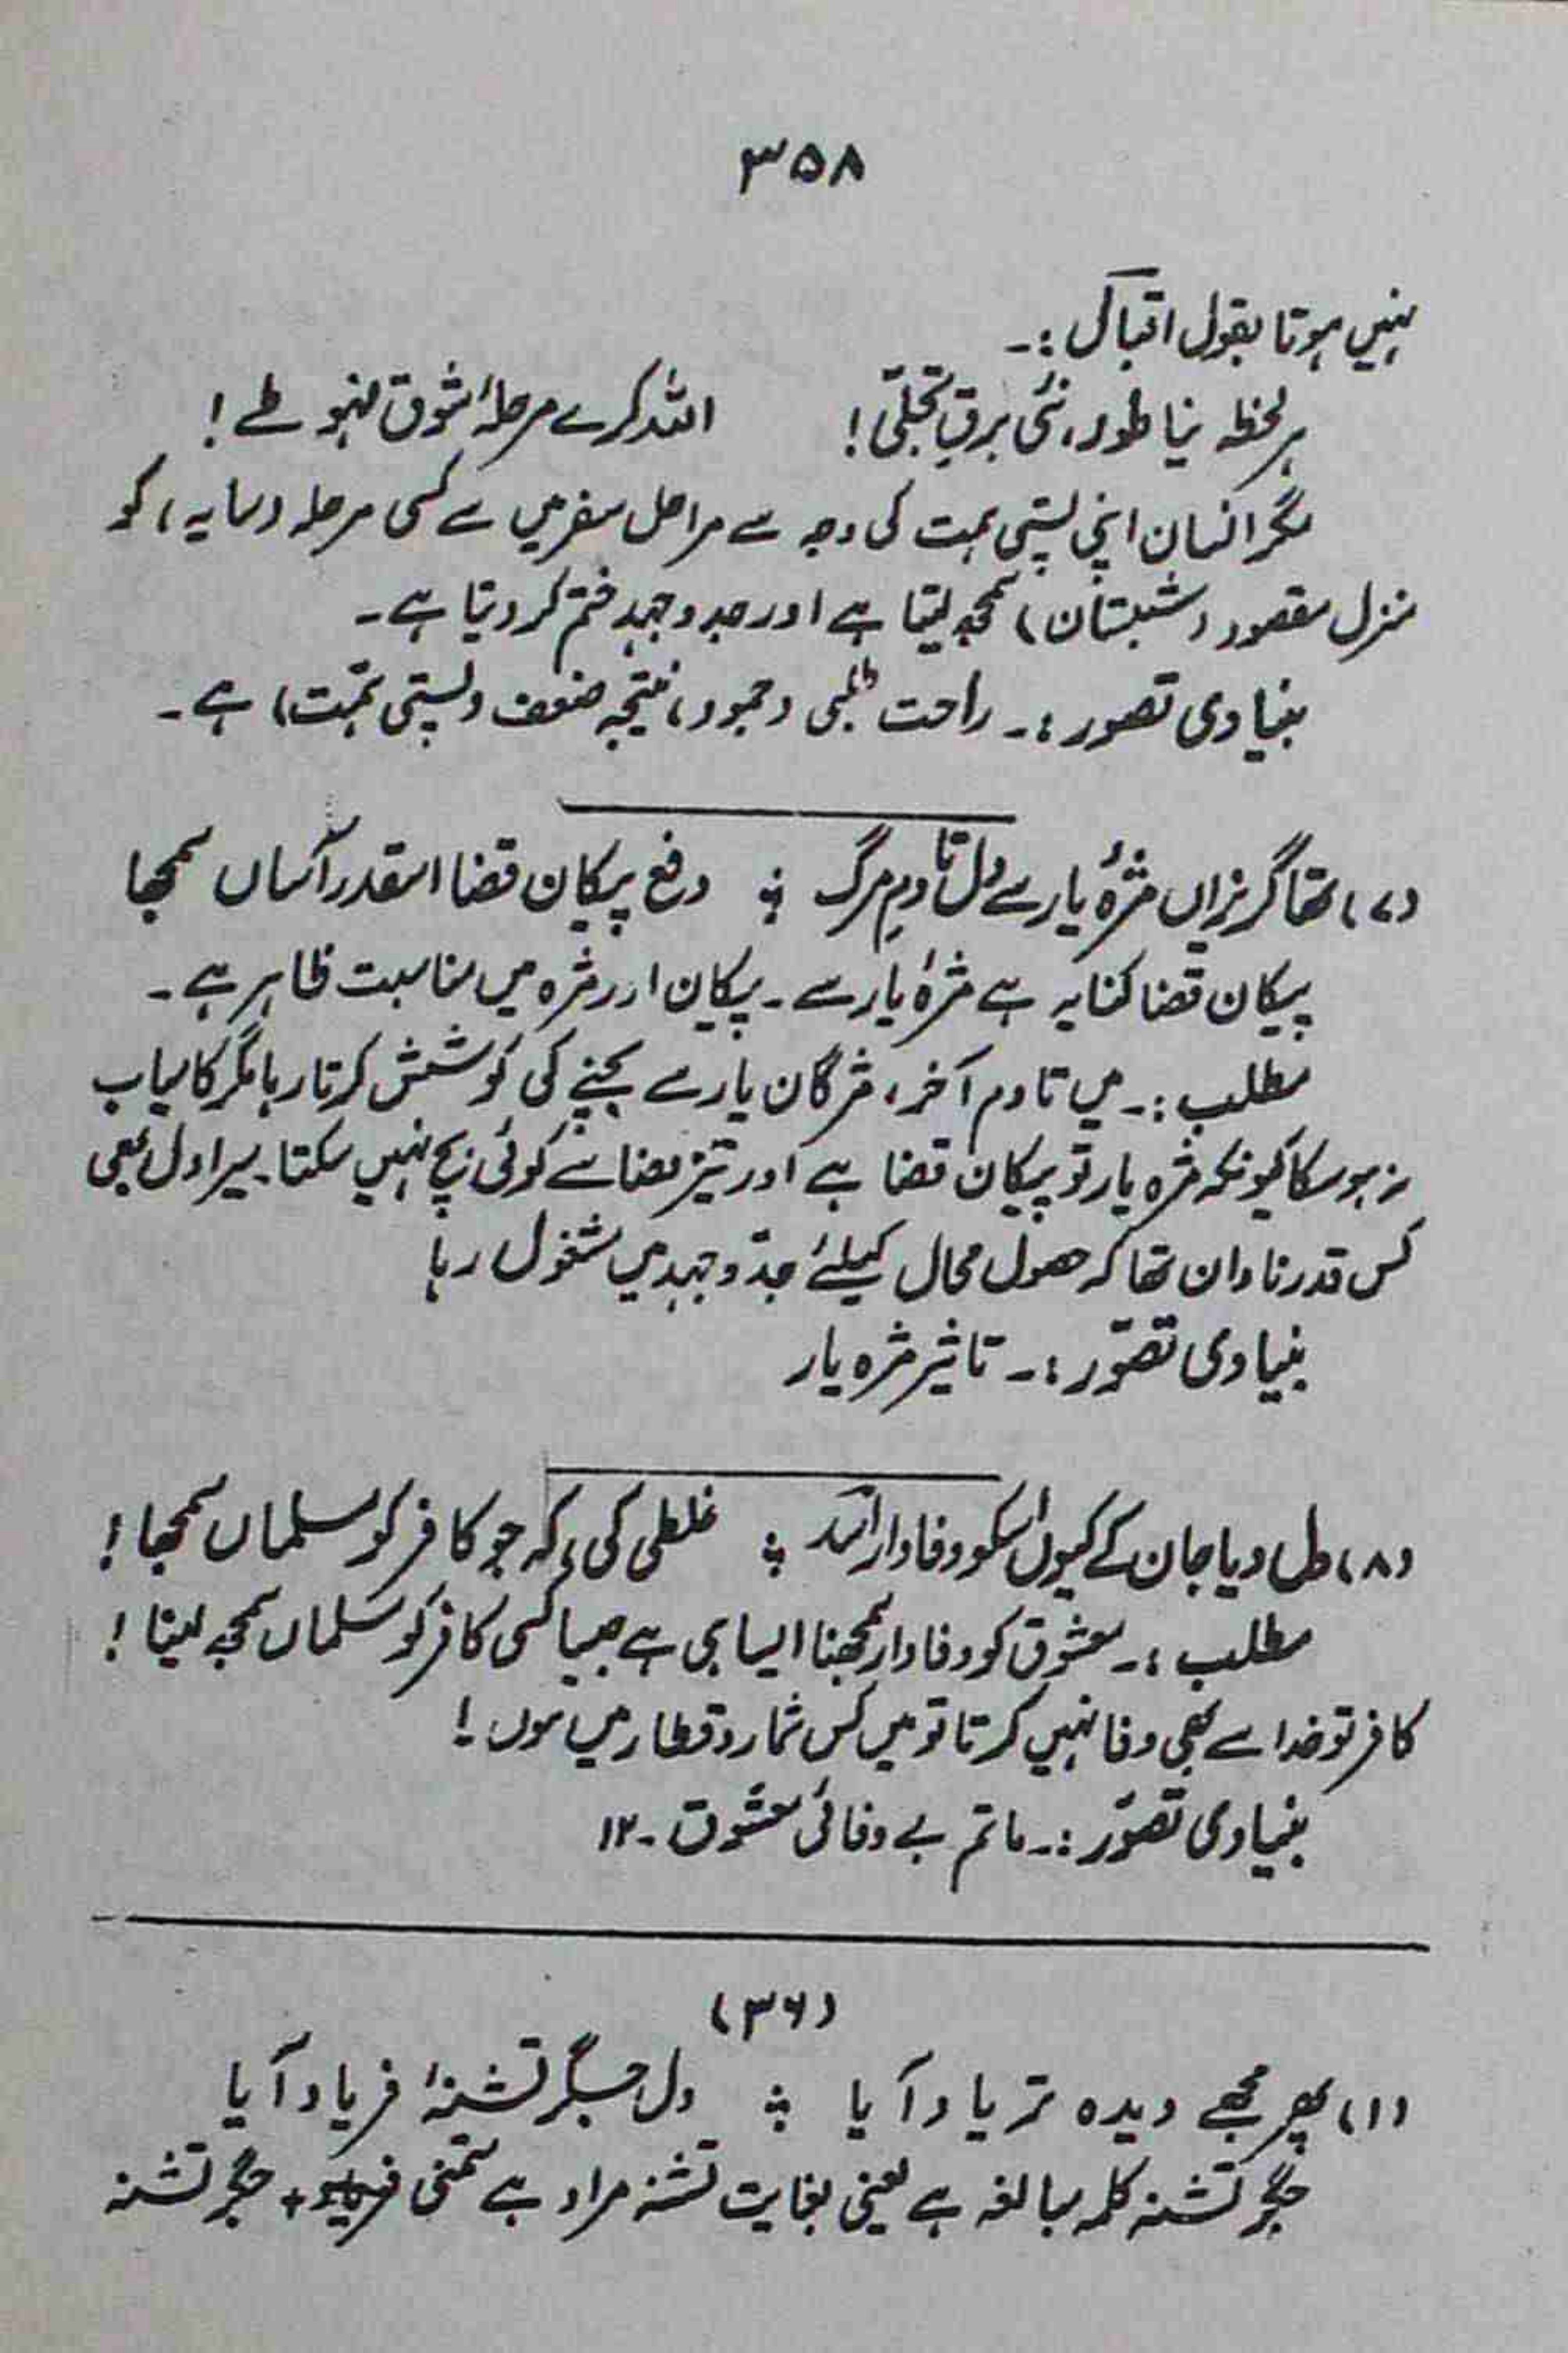 ۳۵۸
نہیں ہوتا بقول اقبال :۔
ہر لحظہ نیا طور، نئی برقِ تجلّی! اللہ کرے مرحلۂ شوق نہو طے!
مگر انسان اپنی پستی ہمت کی وجہ سے مراحل سفر میں سے کسی مرحلہ (سایہ) کو
منزل مقصود (شبستان) سمجھ لیتا ہے اور جد و جہد ختم کر دیتا ہے۔
بنیادی تصور :۔ راحت طلبی (جمود) نتیجہ ضعف (پستی ہمّت) ہے۔
(۷) تھا گریزاں مژۂ یار سے دل تا دمِ مرگ ؛ دفع پیکان قضا اسقدر آساں سمجھا
پیکان قضا کنایہ ہے مژۂ یار سے۔ پیکان اور مژہ میں مناسبت ظاہر ہے۔
مطلب :۔ میں تادم آخر، مژگان یار سے بچنے کی کوشش کرتا رہا مگر کامیاب
نہ ہو سکا کیونکہ مژہ یار تو پیکان قضا ہے اور تیر قضا سے کوئی بچ نہیں سکتا۔ میرا دل بھی
کس قدر نادان تھا کہ حصول محال کیلئے جدّ و جہد میں مشغول رہا
بنیادی تصوّر :۔ تاثیر مژہ یار
(۸) دل دیا جان کے کیوں اسکو وفادار اسدؔ ؛ غلطی کی، کہ جو کافر کو مسلماں سمجھا!
مطلب :۔ معشوق کو وفادار سمجھنا ایسا ہی ہے جیسا کسی کافر کو مسلماں سمجھ لینا!
کافر تو خدا سے بھی وفا نہیں کرتا تو میں کس شمار و قطار میں ہوں!
بنیادی تصوّر :۔ ماتم بے وفائی معشوق۔ ۱۲
(۳۶)
(۱) پھر مجھے دیدہ تر یاد آیا ؛ دل جگر تشنۂ فریاد آیا
جگر تشنہ کلمہ مبالغہ ہے یعنی بغایت تشنہ مراد ہے متمنی جگر تشنہ